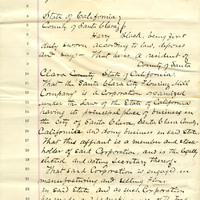 State of California,
County of Santa Clara } ss
Harry Slush, being first
duly sworn according to law, deposes
and says: That he is a resident of
County of Santa
Clara County, State of California.
That the Santa Clara City Flouring Mill
Company is a Corporation organized
under the Law of the State of California
having its principal place of business in
the City of Santa Clara, Santa Clara County,
California and doing business in said State
That this affiant is a member and stock
holder of said Corporation, and is the legally
elected and acting Secretary thereof.
That said Corporation is engaged in
manufacturing and selling Flour
in said State, and as such Corporation